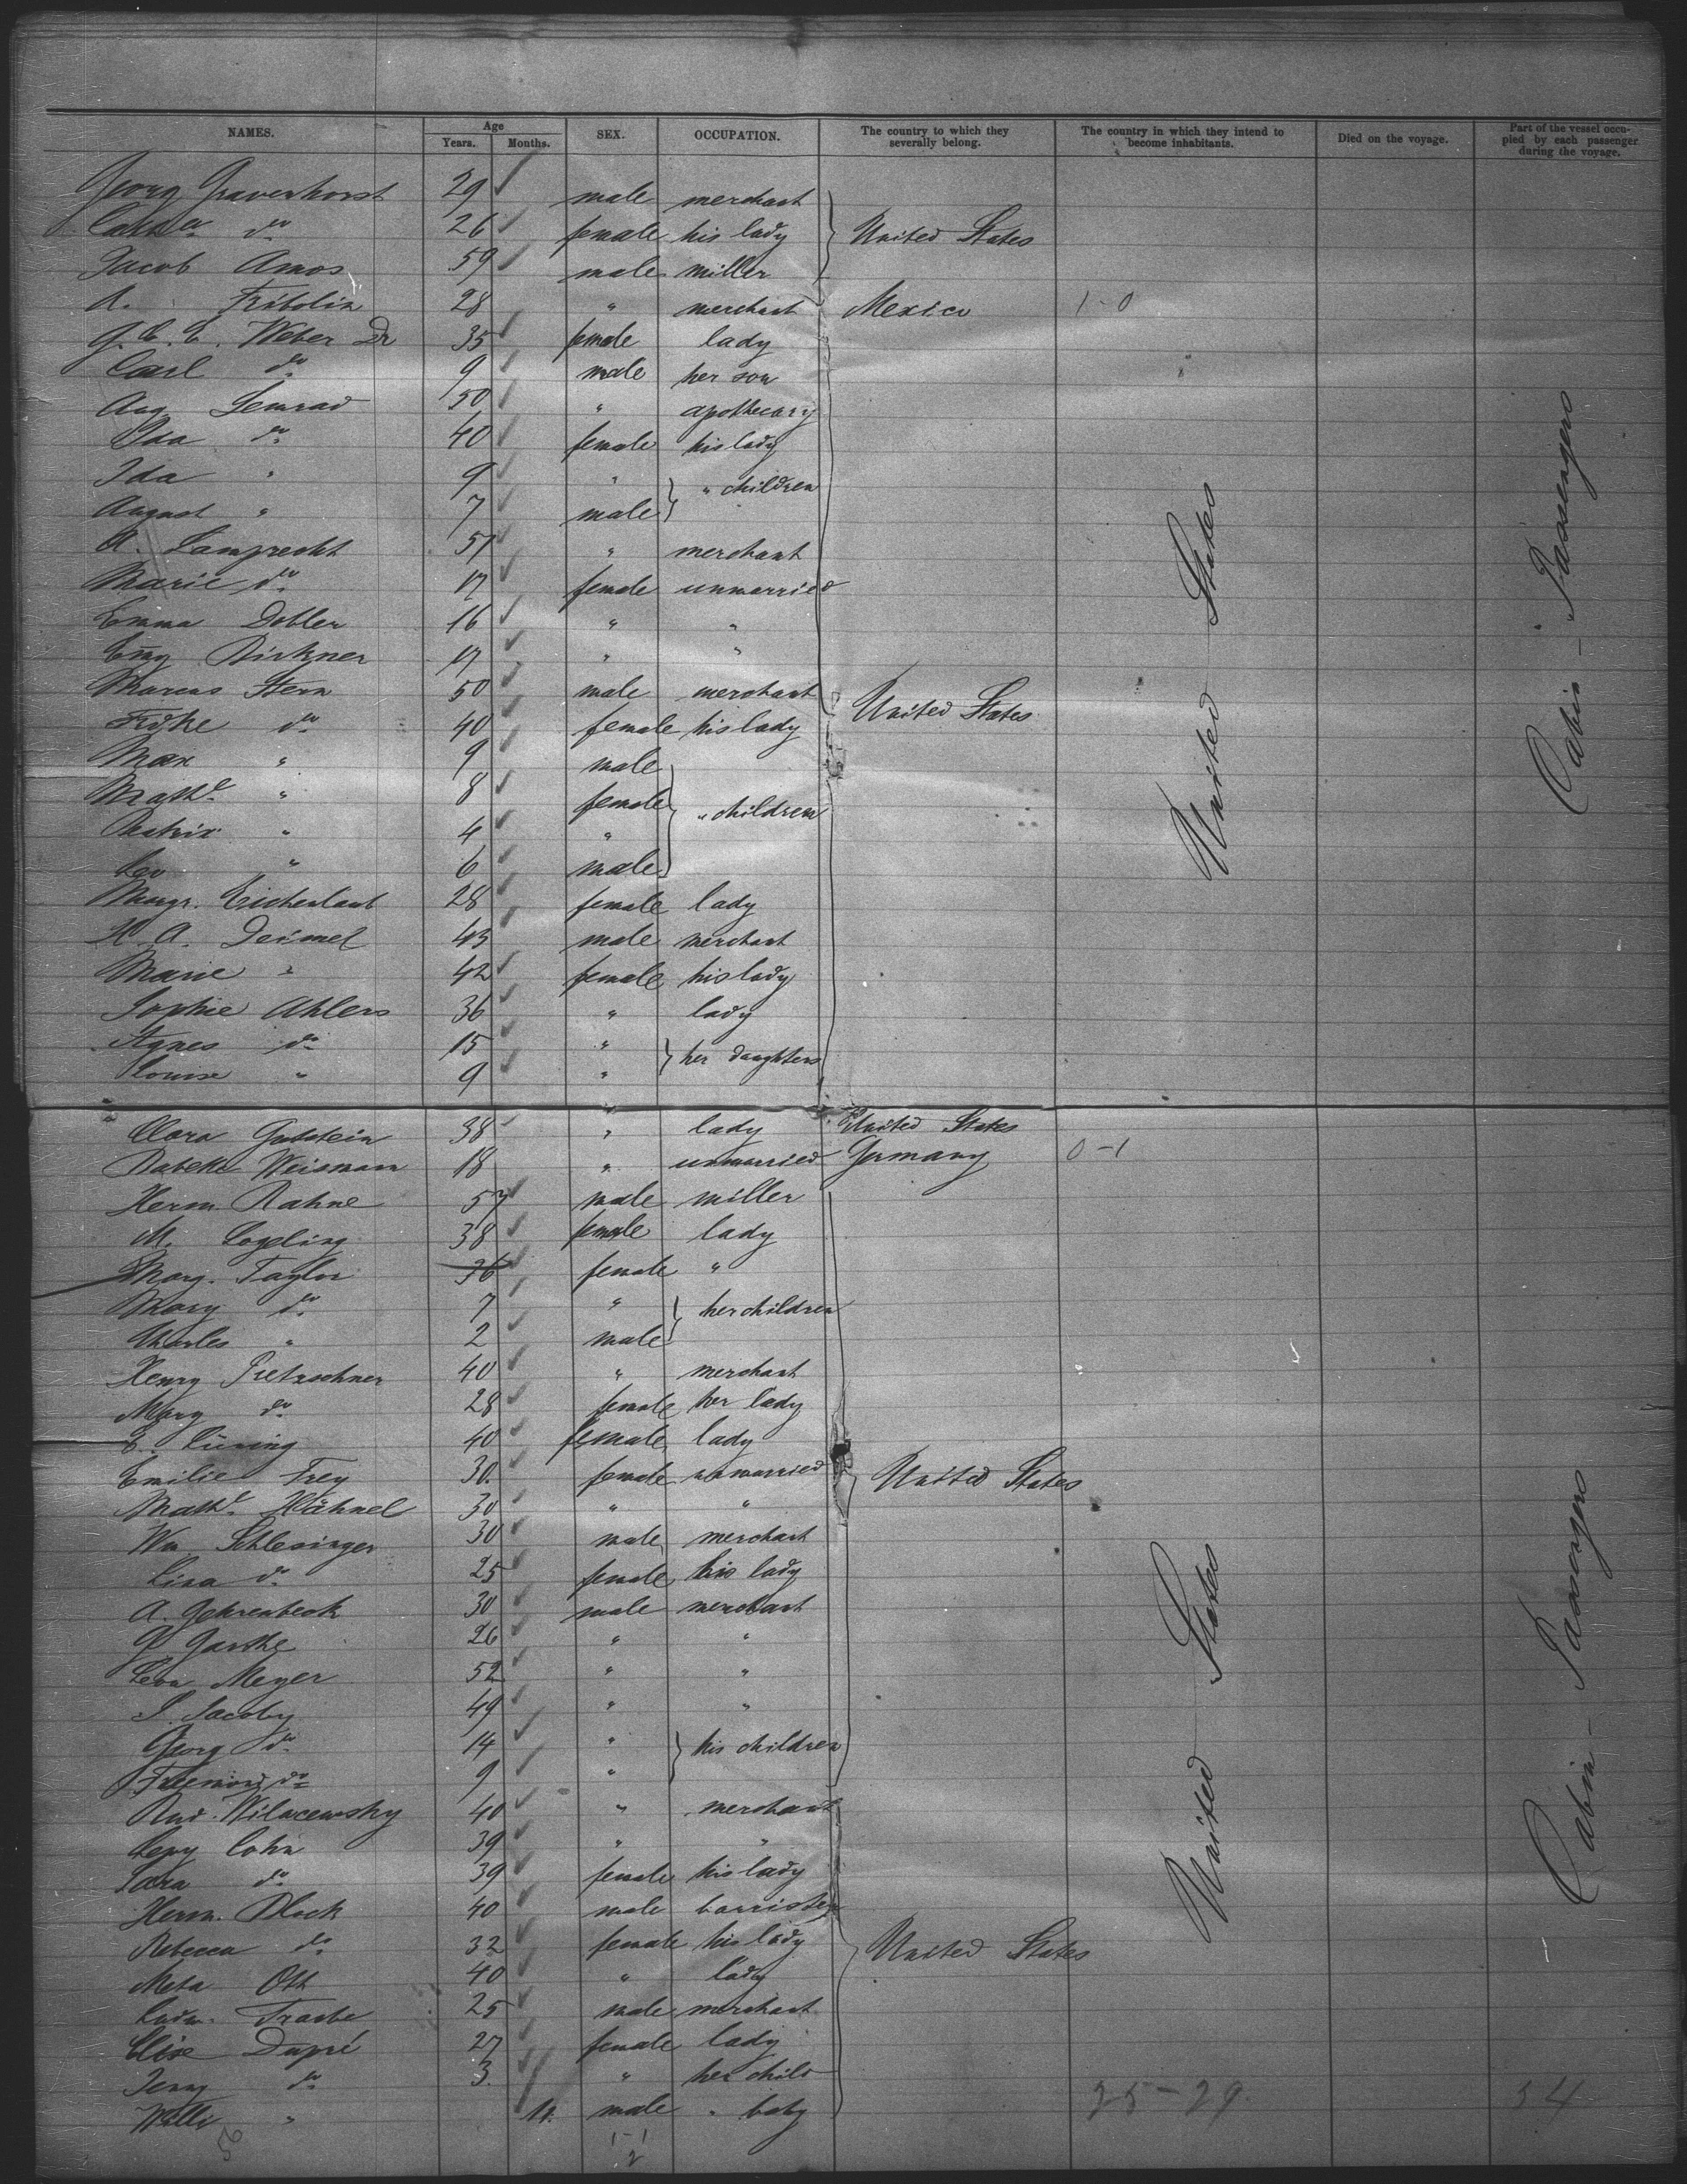 NAMES. Age Years. Months. SEX. OCCUPATION. The country to which they severally belong. The country in which they intend to become inhabitants. Died on the voyage. Part of the vessel occupied by each passenger during the voyage.
Georg Gravenhorst 29 male merchant
do 26 female his lady United States
Jacob Amos 59 male miller
A. Fridolin 28 " merchant Mexico 1-0
G. C. E. Weber Dr 35 female lady
Carl do 9 male her son
Aug. Semrad 50 " apothecary
Ida do 40 female his lady
Ida " 9 " " children
August " 7 male
A. Lamprecht 51 " merchant
Marie do 17 female unmarried
Emma Dobler 16 " "
Emy Birkner 17 " "
Marcus Stern 50 male merchant United States
Fridke do 40 female his lady
Max " 9 male
Mathe " 8 female " children
Beatrix " 4 "
Leo " 6 male
Margr. Eichenlaub 28 female lady
H. A. Deimel 43 male merchant
Marie " 42 female his lady
Sophie Ahlers 36 " lady
Agnes do 15 " her daughters
Louise " 9 "
United States
Cabin - Passengers
Clara Gutstein 38 " lady United States
Babette Weismann 18 " unmarried Germany 0-1
Herm. Rahne 57 male miller
M. Logeling 38 female lady
Marg. Taylor 36 female "
Mary do 7 " her children
Charles " 2 male
Henry Pretzschner 40 " merchant
Mary do 28 female her lady
E. Lüring 40 female lady
Emilie Frey 30. female unmarried United States
Mathe Hähnel 30 " "
Wm. Schlesinger 30 male merchant
Lina do 25 female his lady
A. Gehrenbeck 30 male merchant
G. Garthe 26 " "
Leon Meyer 52 " "
S. Jacoby 49 " "
Georg do 14 " his children
do 9 "
Rud. Wilucewsky 40 " merchant
Levy Cohn 39 " "
Sara do 39 female his lady
Herm. Block 40 male barrister
Rebecca do 32 female his lady United States
Meta Ott 40 " lady
Ludw. Traube 25 male merchant
Elise Dupré 27 female lady
Jenny do 3. " her child
Willi " 11. male " baby
United States
Cabin - Passengers
25-29. 54
1-1
2